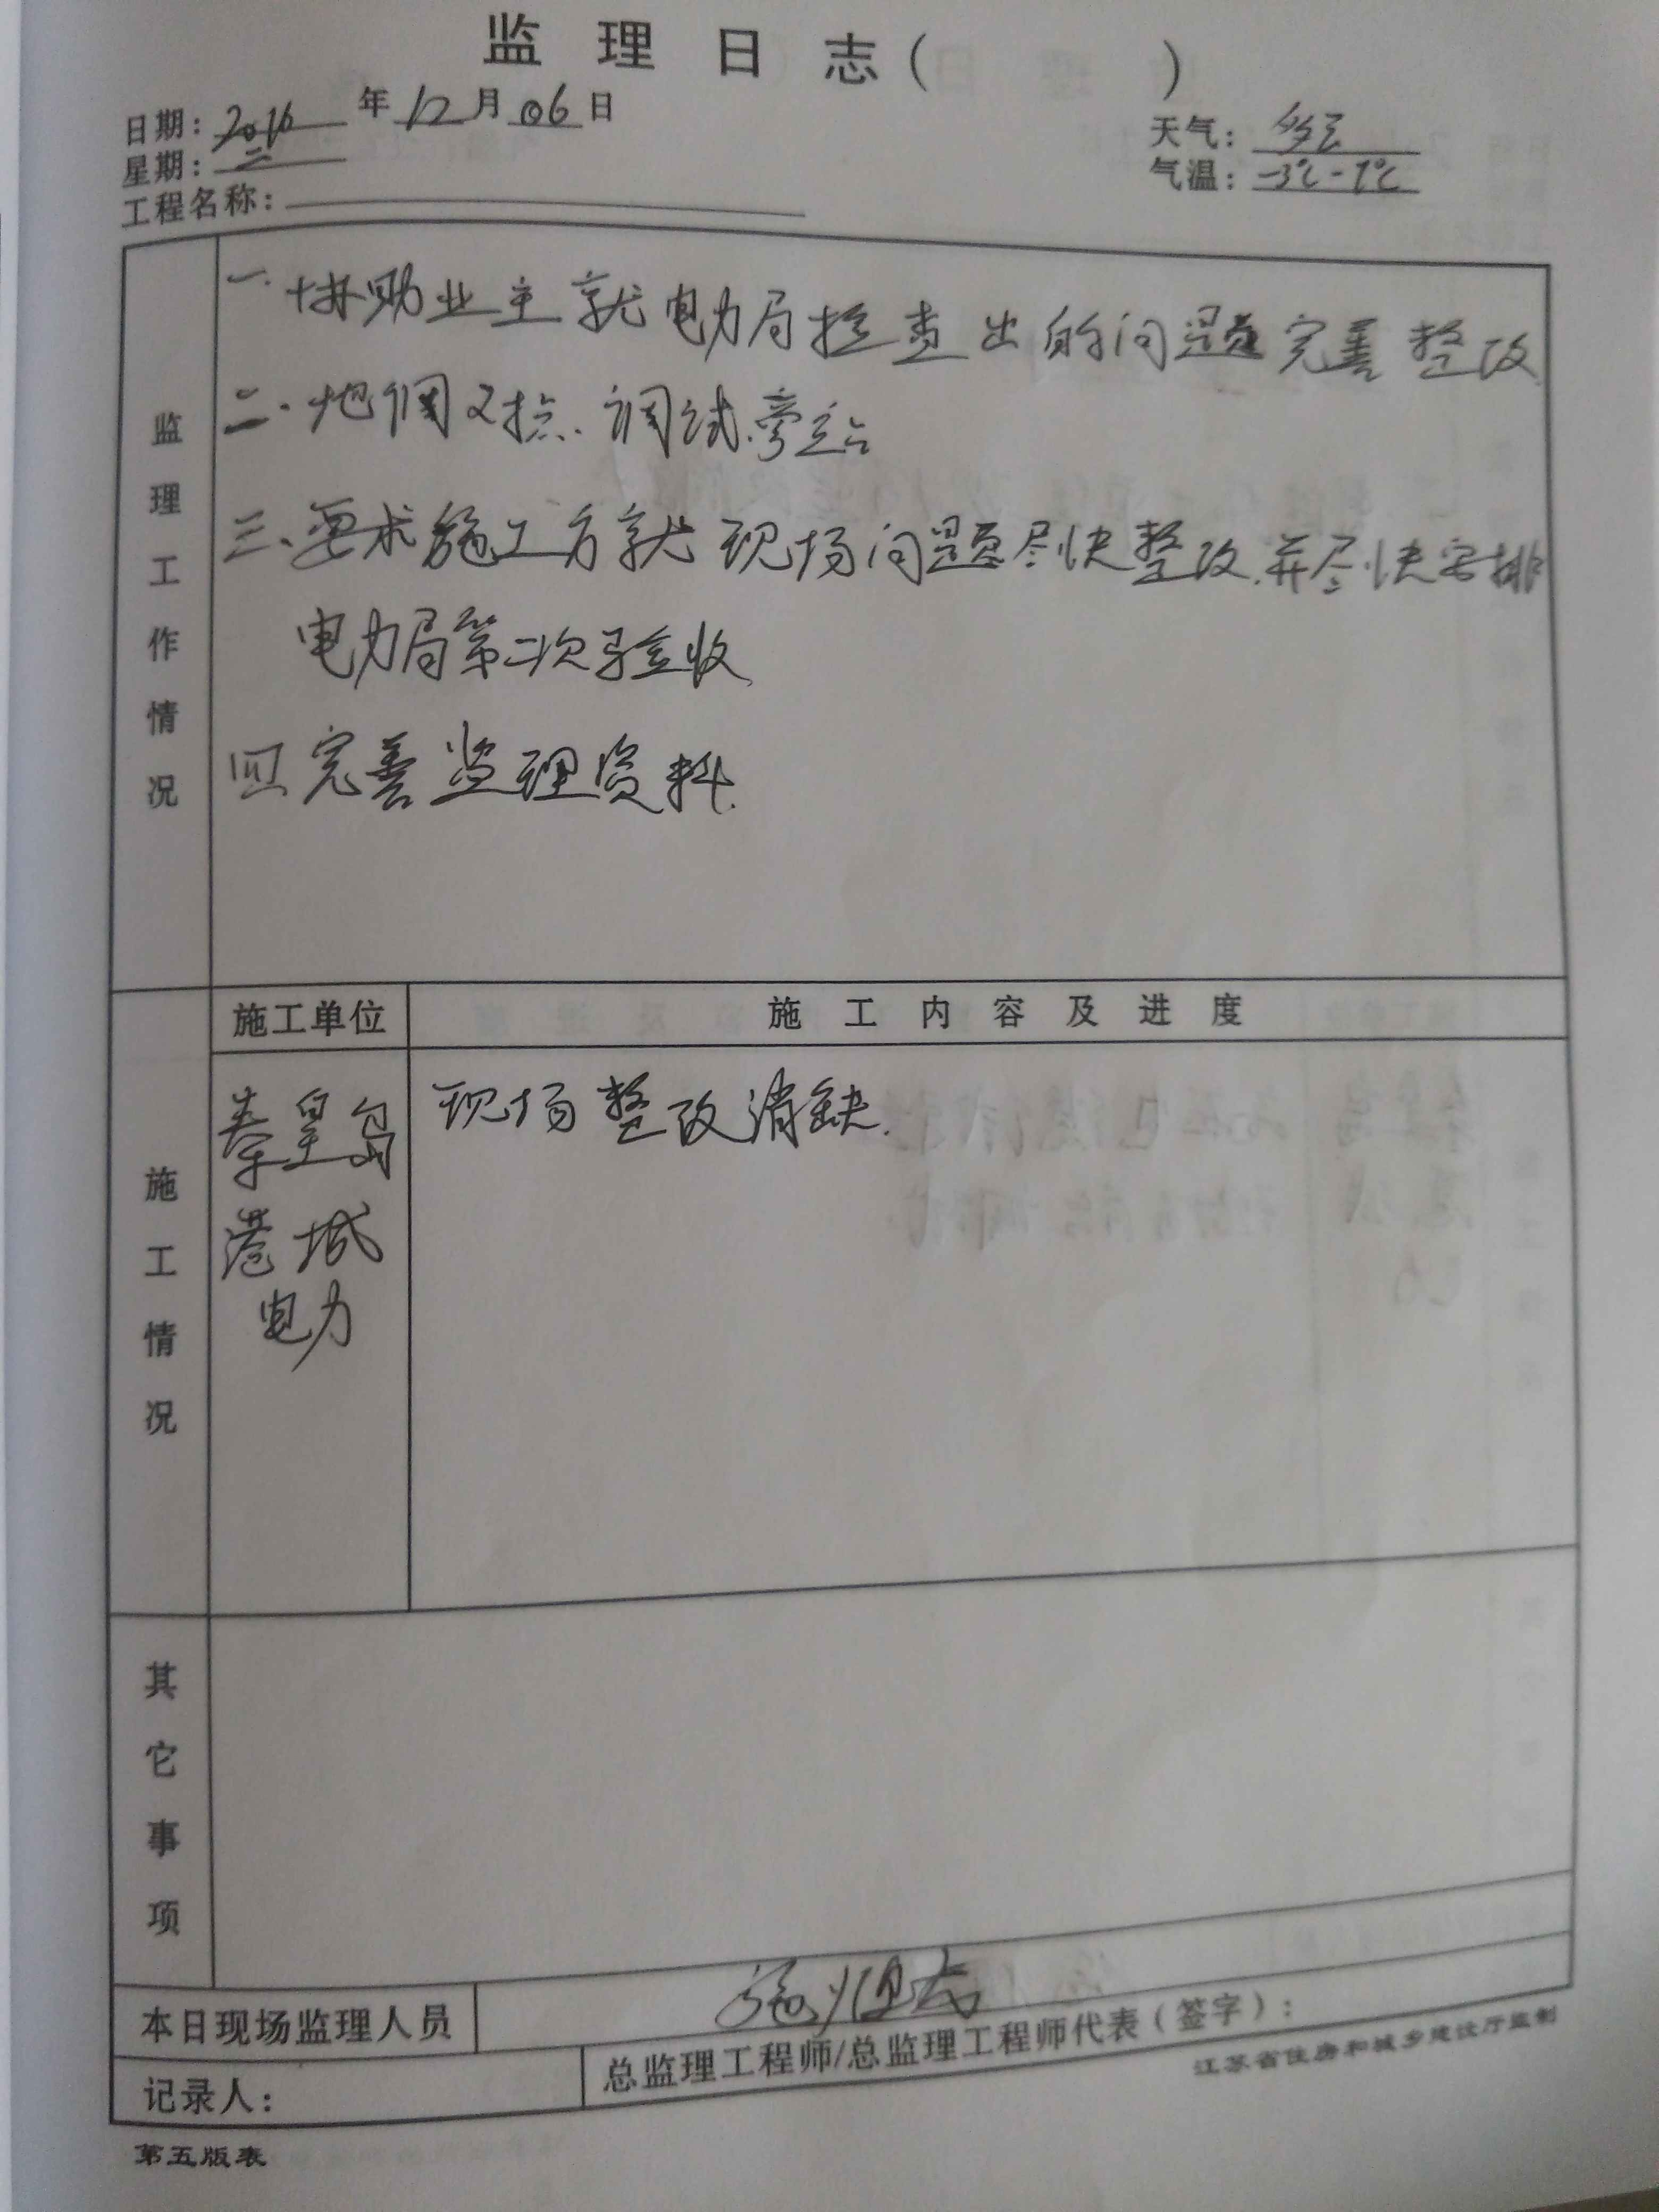 监理日志（ ）
日期：2016年12月06日
天气：多云
星期：二
气温：-3℃-7℃
工程名称：
监理工作情况
一.协助业主就电力局检查出的问题完善整改.
二.地调对点.调试.旁站
三、要求施工方就现场问题尽快整改.并尽快安排
电力局第二次验收.
四完善监理资料.
施工情况
施工单位
施工内容及进度
秦皇岛
港城
电力
现场整改消缺.
其它事项
本日现场监理人员
记录人：
总监理工程师/总监理工程师代表（签字）：
江苏省住房和城乡建设厅监制
第五版表